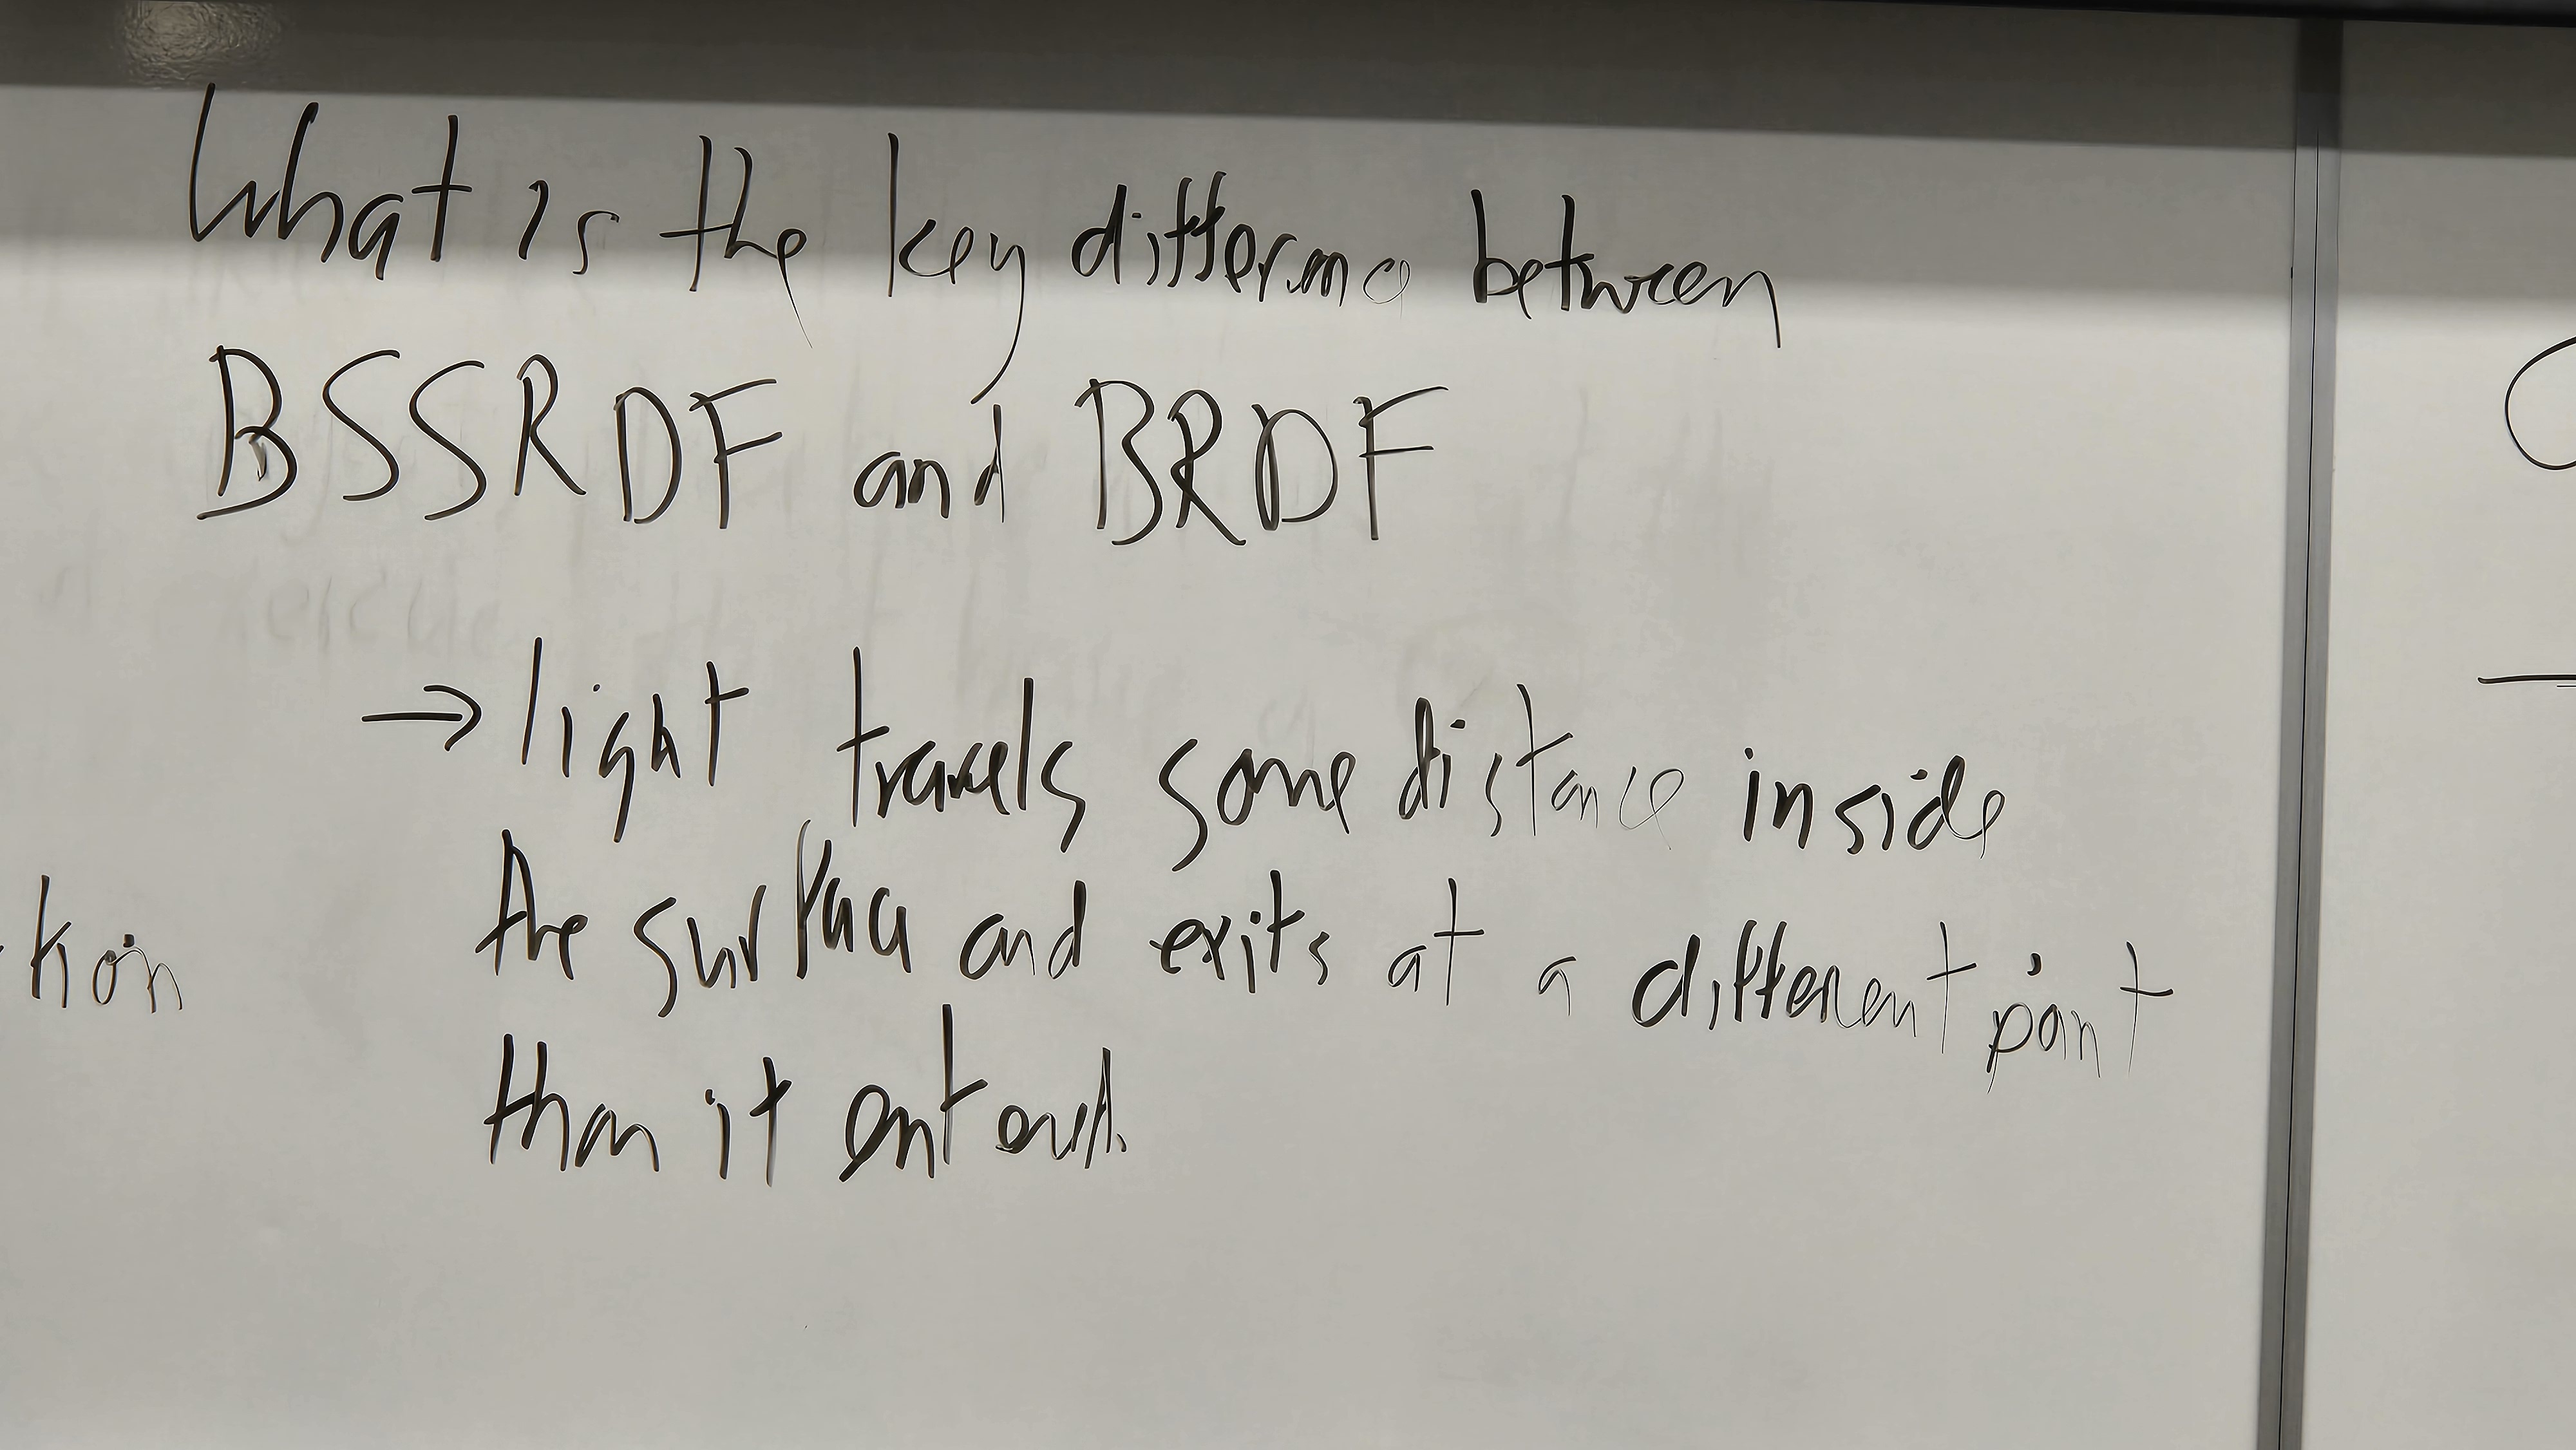 What is the key difference between
BSSRDF and BRDF
→ light travels some distance inside
the surface and exits at a different point
tion
than it entered.